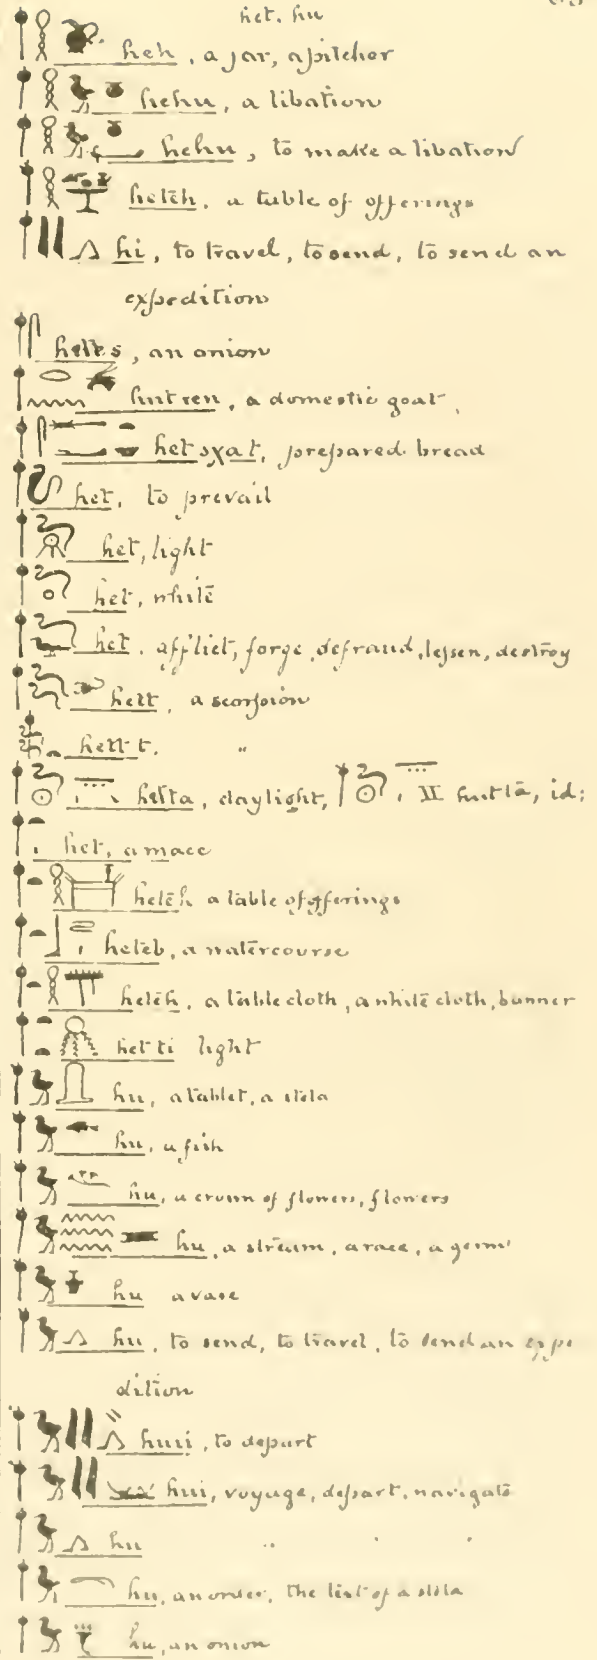 het. hu
heh, a jar, a pitcher
hehu, a libation
hehu, to make a libation
heteh. a table of offerings
hi, to travel, to send, to send an
expedition
, an onion
, a domestic goat
, prepared bread
het, to prevail
het, light
het, white
het. afflict, forge, defraud, lessen, destroy
hett, a scorpion
hett t. "
hetta, daylight, II , id;
het, a mace
heteh a table of offerings
heteb, a watercourse
heteh, a table cloth, a white cloth, banner
het ti light
hu, a tablet, a stela
hu, a fish
hu, a crown of flowers, flowers
hu, a stream, a race, a germ
hu a vase
hu, to send, to travel, to send an expe
dition
huii, to depart
hui, voyage, depart, navigate
hu " " "
hu, an order, the text of a stela
hu, an onion